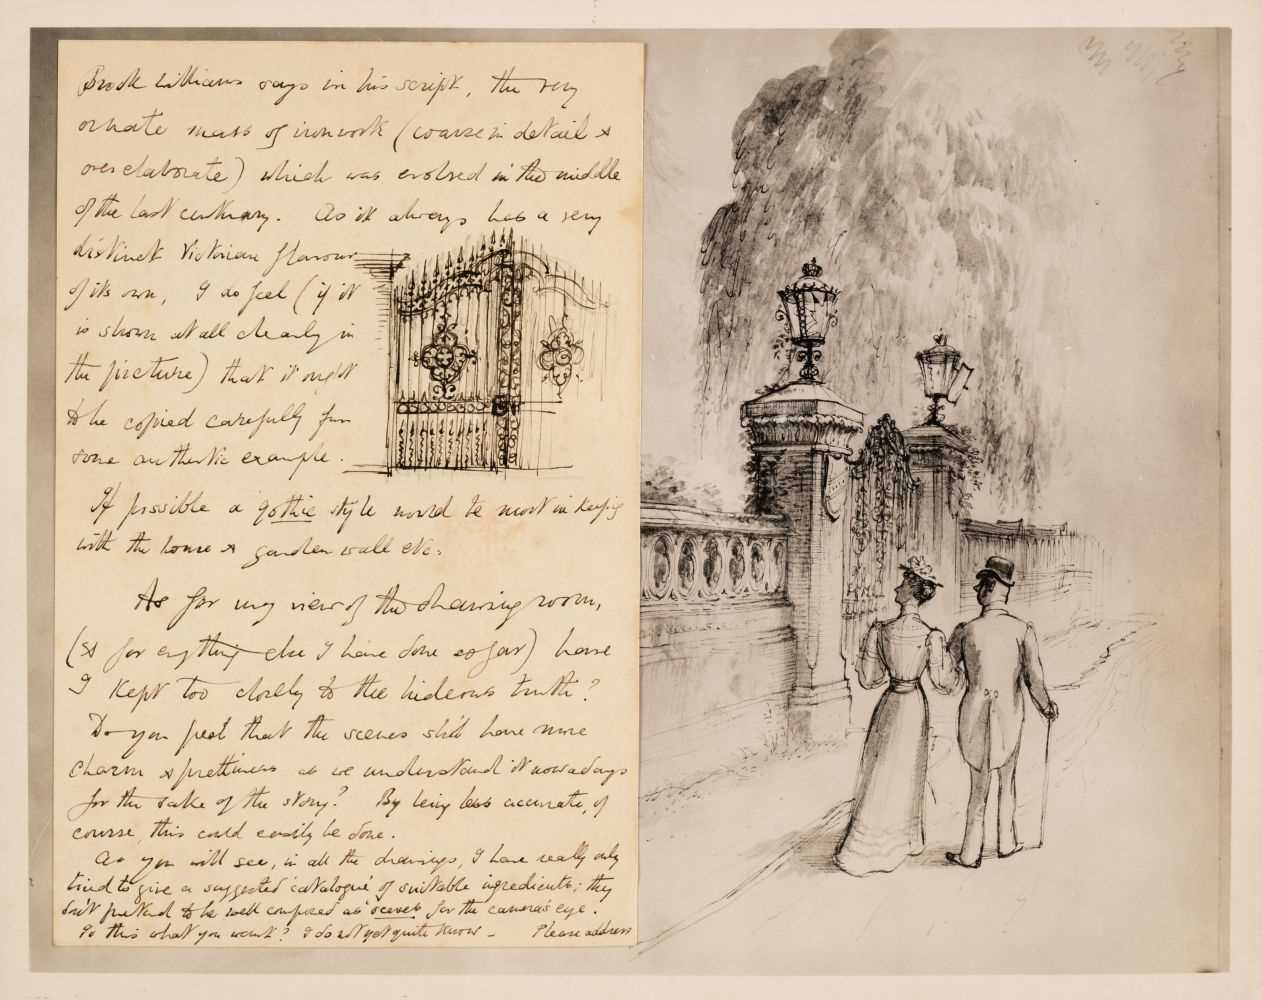 Brook Williams says in his script, the very
ornate mass of ironwork (coarse in detail &
over elaborate) which was evolved in the middle
of the last century. As it always has a very
distinct Victorian flavour
of its own, I do feel (if it
is shown at all clearly in
the picture) that it ought
to be copied carefully from
some authentic example.
If possible a gothic style would be most in keeping
with the house & garden wall etc.
As for my view of the drawing room,
(& for anything else I have done so far) have
I kept too closely to the hideous truth?
Do you feel that the scenes sh'd have more
charm & prettiness as we understand it nowadays
for the sake of the story? By being less accurate, of
course, this could easily be done.
As you will see, in all the drawings, I have really only
tried to give a suggested 'catalogue' of suitable ingredients; they
don't pretend to be well composed as scenes for the camera's eye.
Is this what you want? I do not yet quite know – Please address